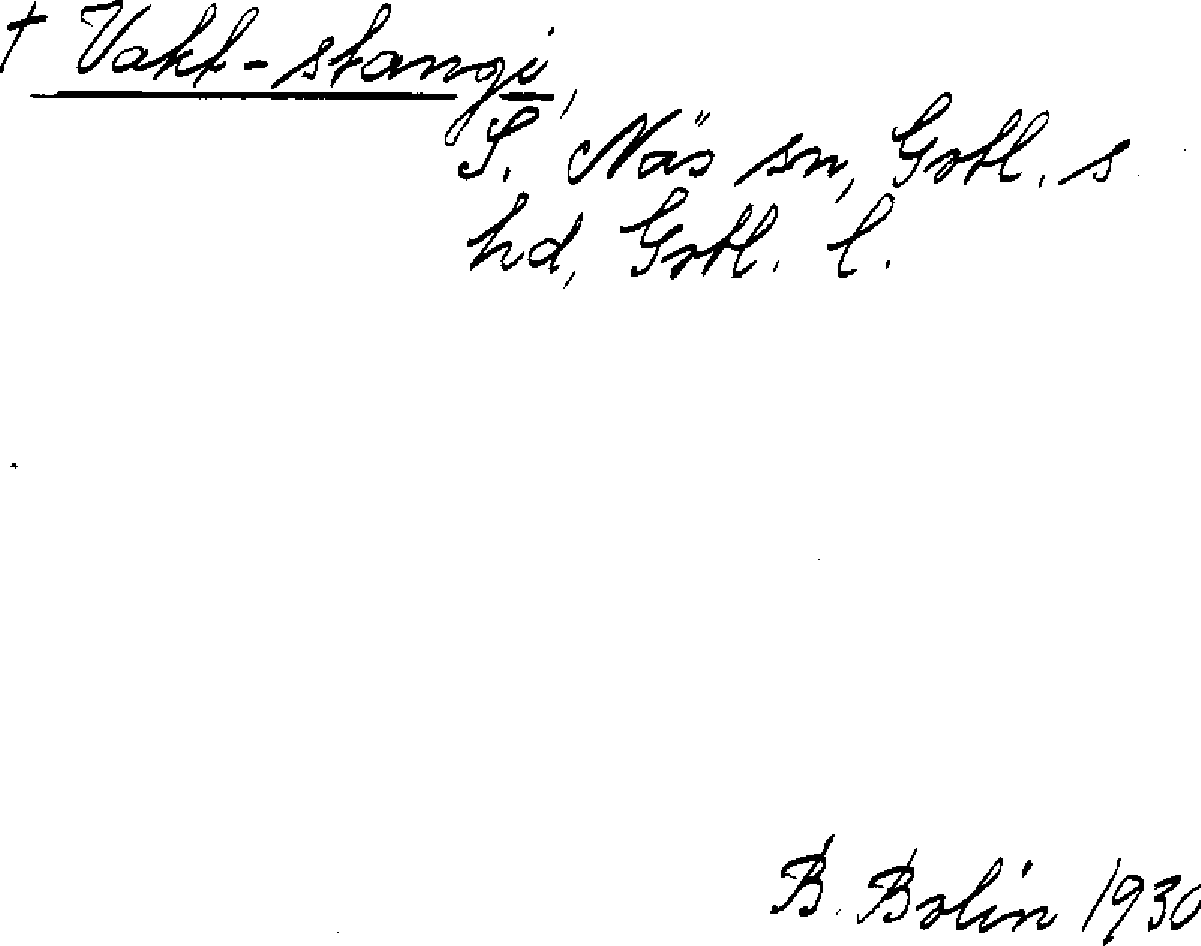 † Vakt-stangi,
S. Näs sn, Gotl. s
hd, Gotl. l.
B. Bolin 1930